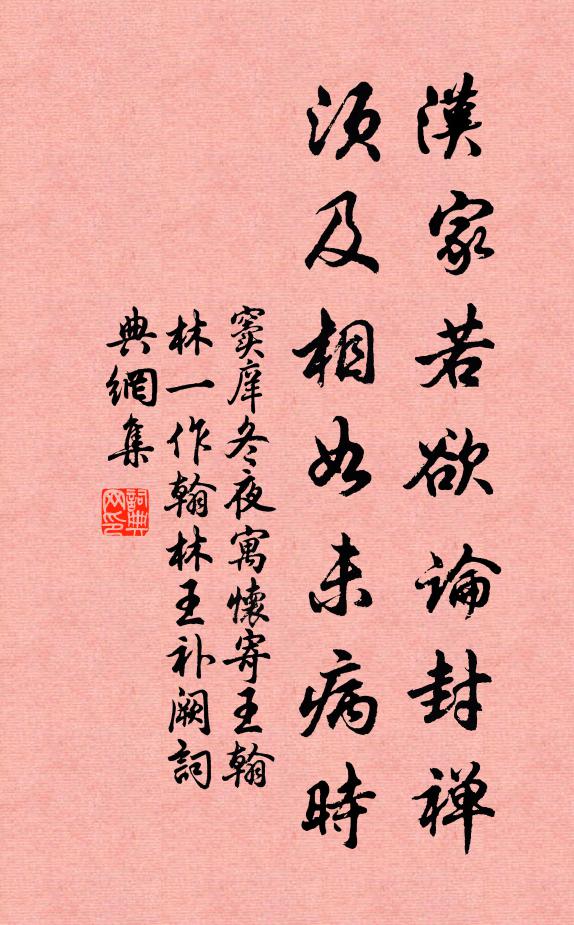 漢家若欲論封禪
須及相如未病時
竇庠冬夜寓懷寄王翰
林一作翰林王补阙詞
典網集
詞典网印